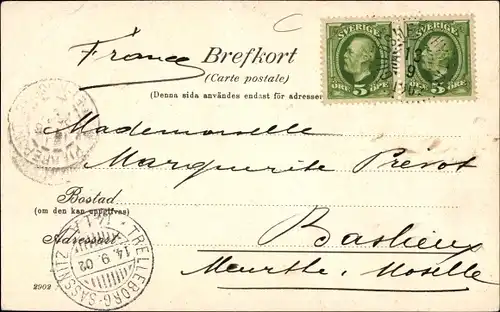 SVERIGE SVERIGE
ÖRE 5 ÖRE 5 ÖRE
France Brefkort
(Carte postale)
(Denna sida användes endast för adressen
Mademoiselle
Marguerite Prevot
Bostad
(om den kan uppgifvas)
Adressort
TRELLEBORG-SASSNITZ
14.9.02
Meurthe Moselle
2902